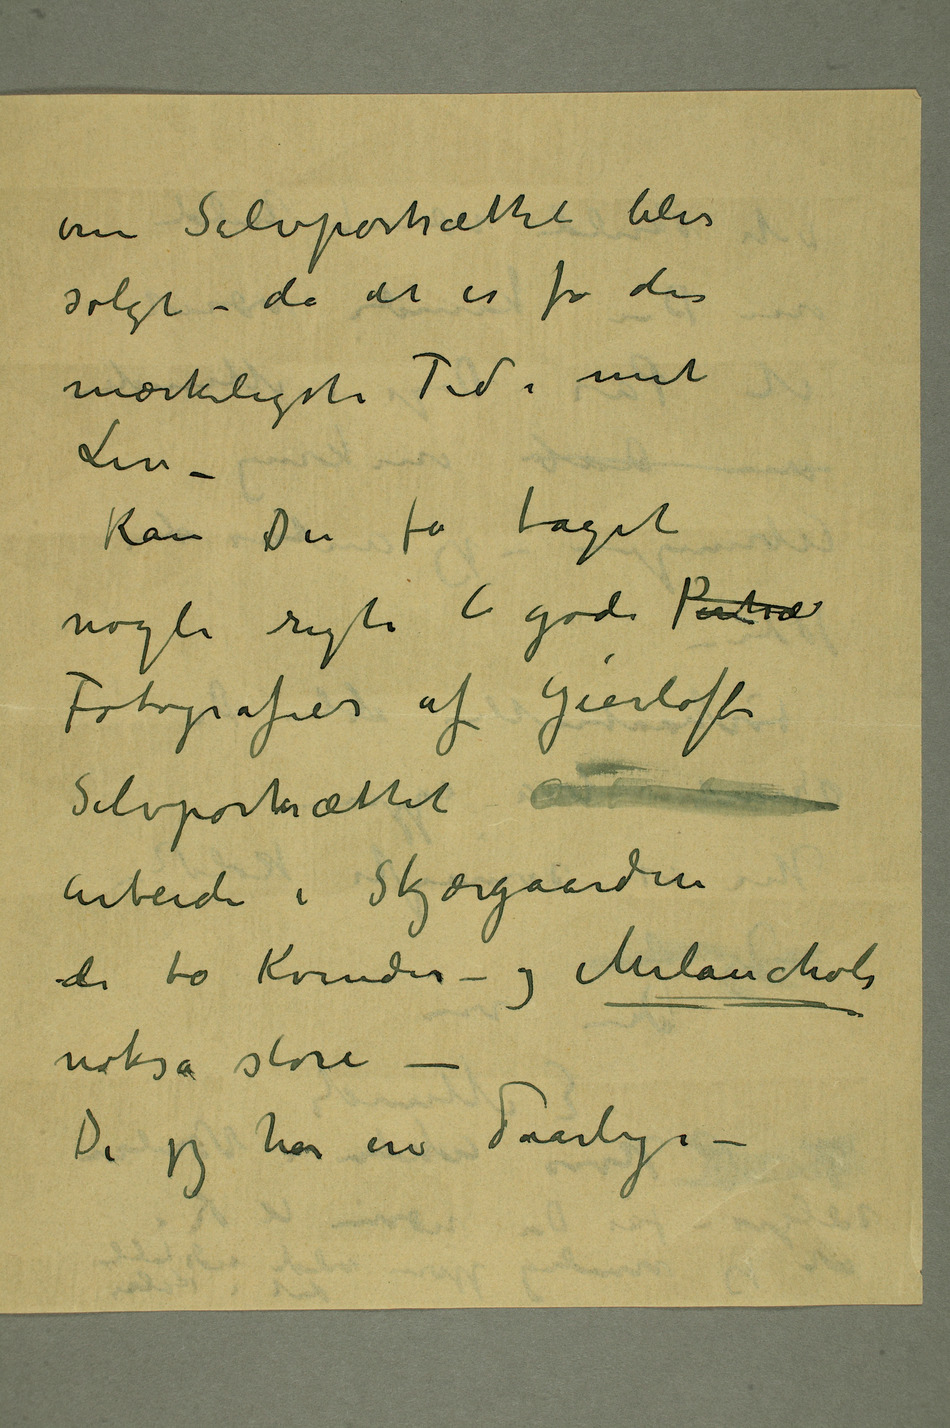 om Selvportrættet blir
solgt – da det er fra den
mærkeligste Tid i mit
Liv –
Kan Du få taget
nogle rigti gode Portræ
Fotografier af Gierløffs
Selvportrættet
arbeide i Skjærgaarden
de to Kvinder – og Melancholi
noksa store —
De jeg har ere daarlige –